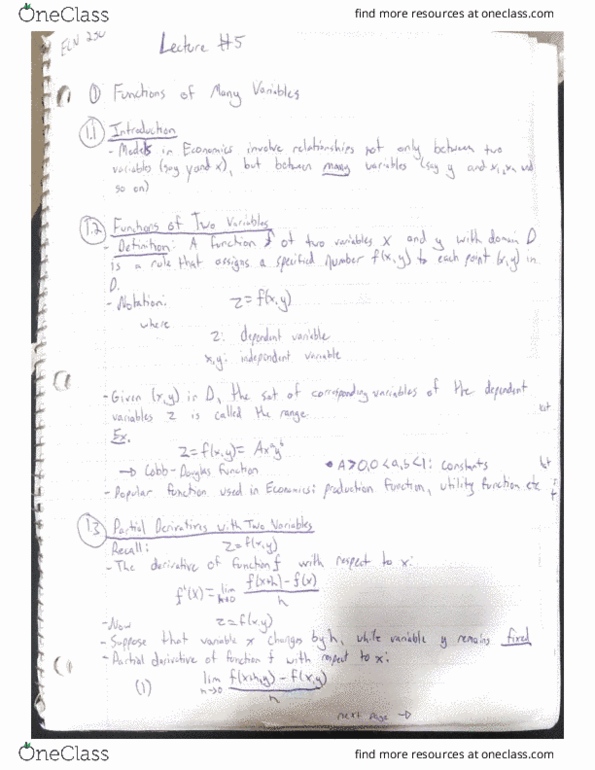 OneClass
find more resources at oneclass.com
ECN 230
Lecture #5
① Functions of Many Variables
1.1 Introduction
- Models in Economics involve relationships not only between two
variables (say y and x), but between many variables (say y and x₁, x₂, and
so on)
1.2 Functions of Two Variables
- Definition: A function f of two variables x and y with domain D
is a rule that assigns a specified number f(x,y) to each point (x,y) in
D.
- Notation: z = f(x,y)
where
z: dependent variable
x,y: independent variable
- Given (x,y) in D, the set of corresponding variables of the dependent
variables z is called the range
Ex.
z = f(x,y) = Ax^a y^b
→ Cobb-Douglas function • A>0, 0<a,b<1: constants
- Popular function used in Economics: production function, utility function etc
1.3 Partial Derivatives with Two Variables
Recall: z = f(x,y)
- The derivative of function f with respect to x:
f'(x) = lim h→0 f(x+h) - f(x) / h
- Now z = f(x,y)
- Suppose that variable x changes by h, while variable y remains fixed
- Partial derivative of function f with respect to x:
(1) lim h→0 f(x+h,y) - f(x,y) / h
next page →
OneClass
find more resources at oneclass.com